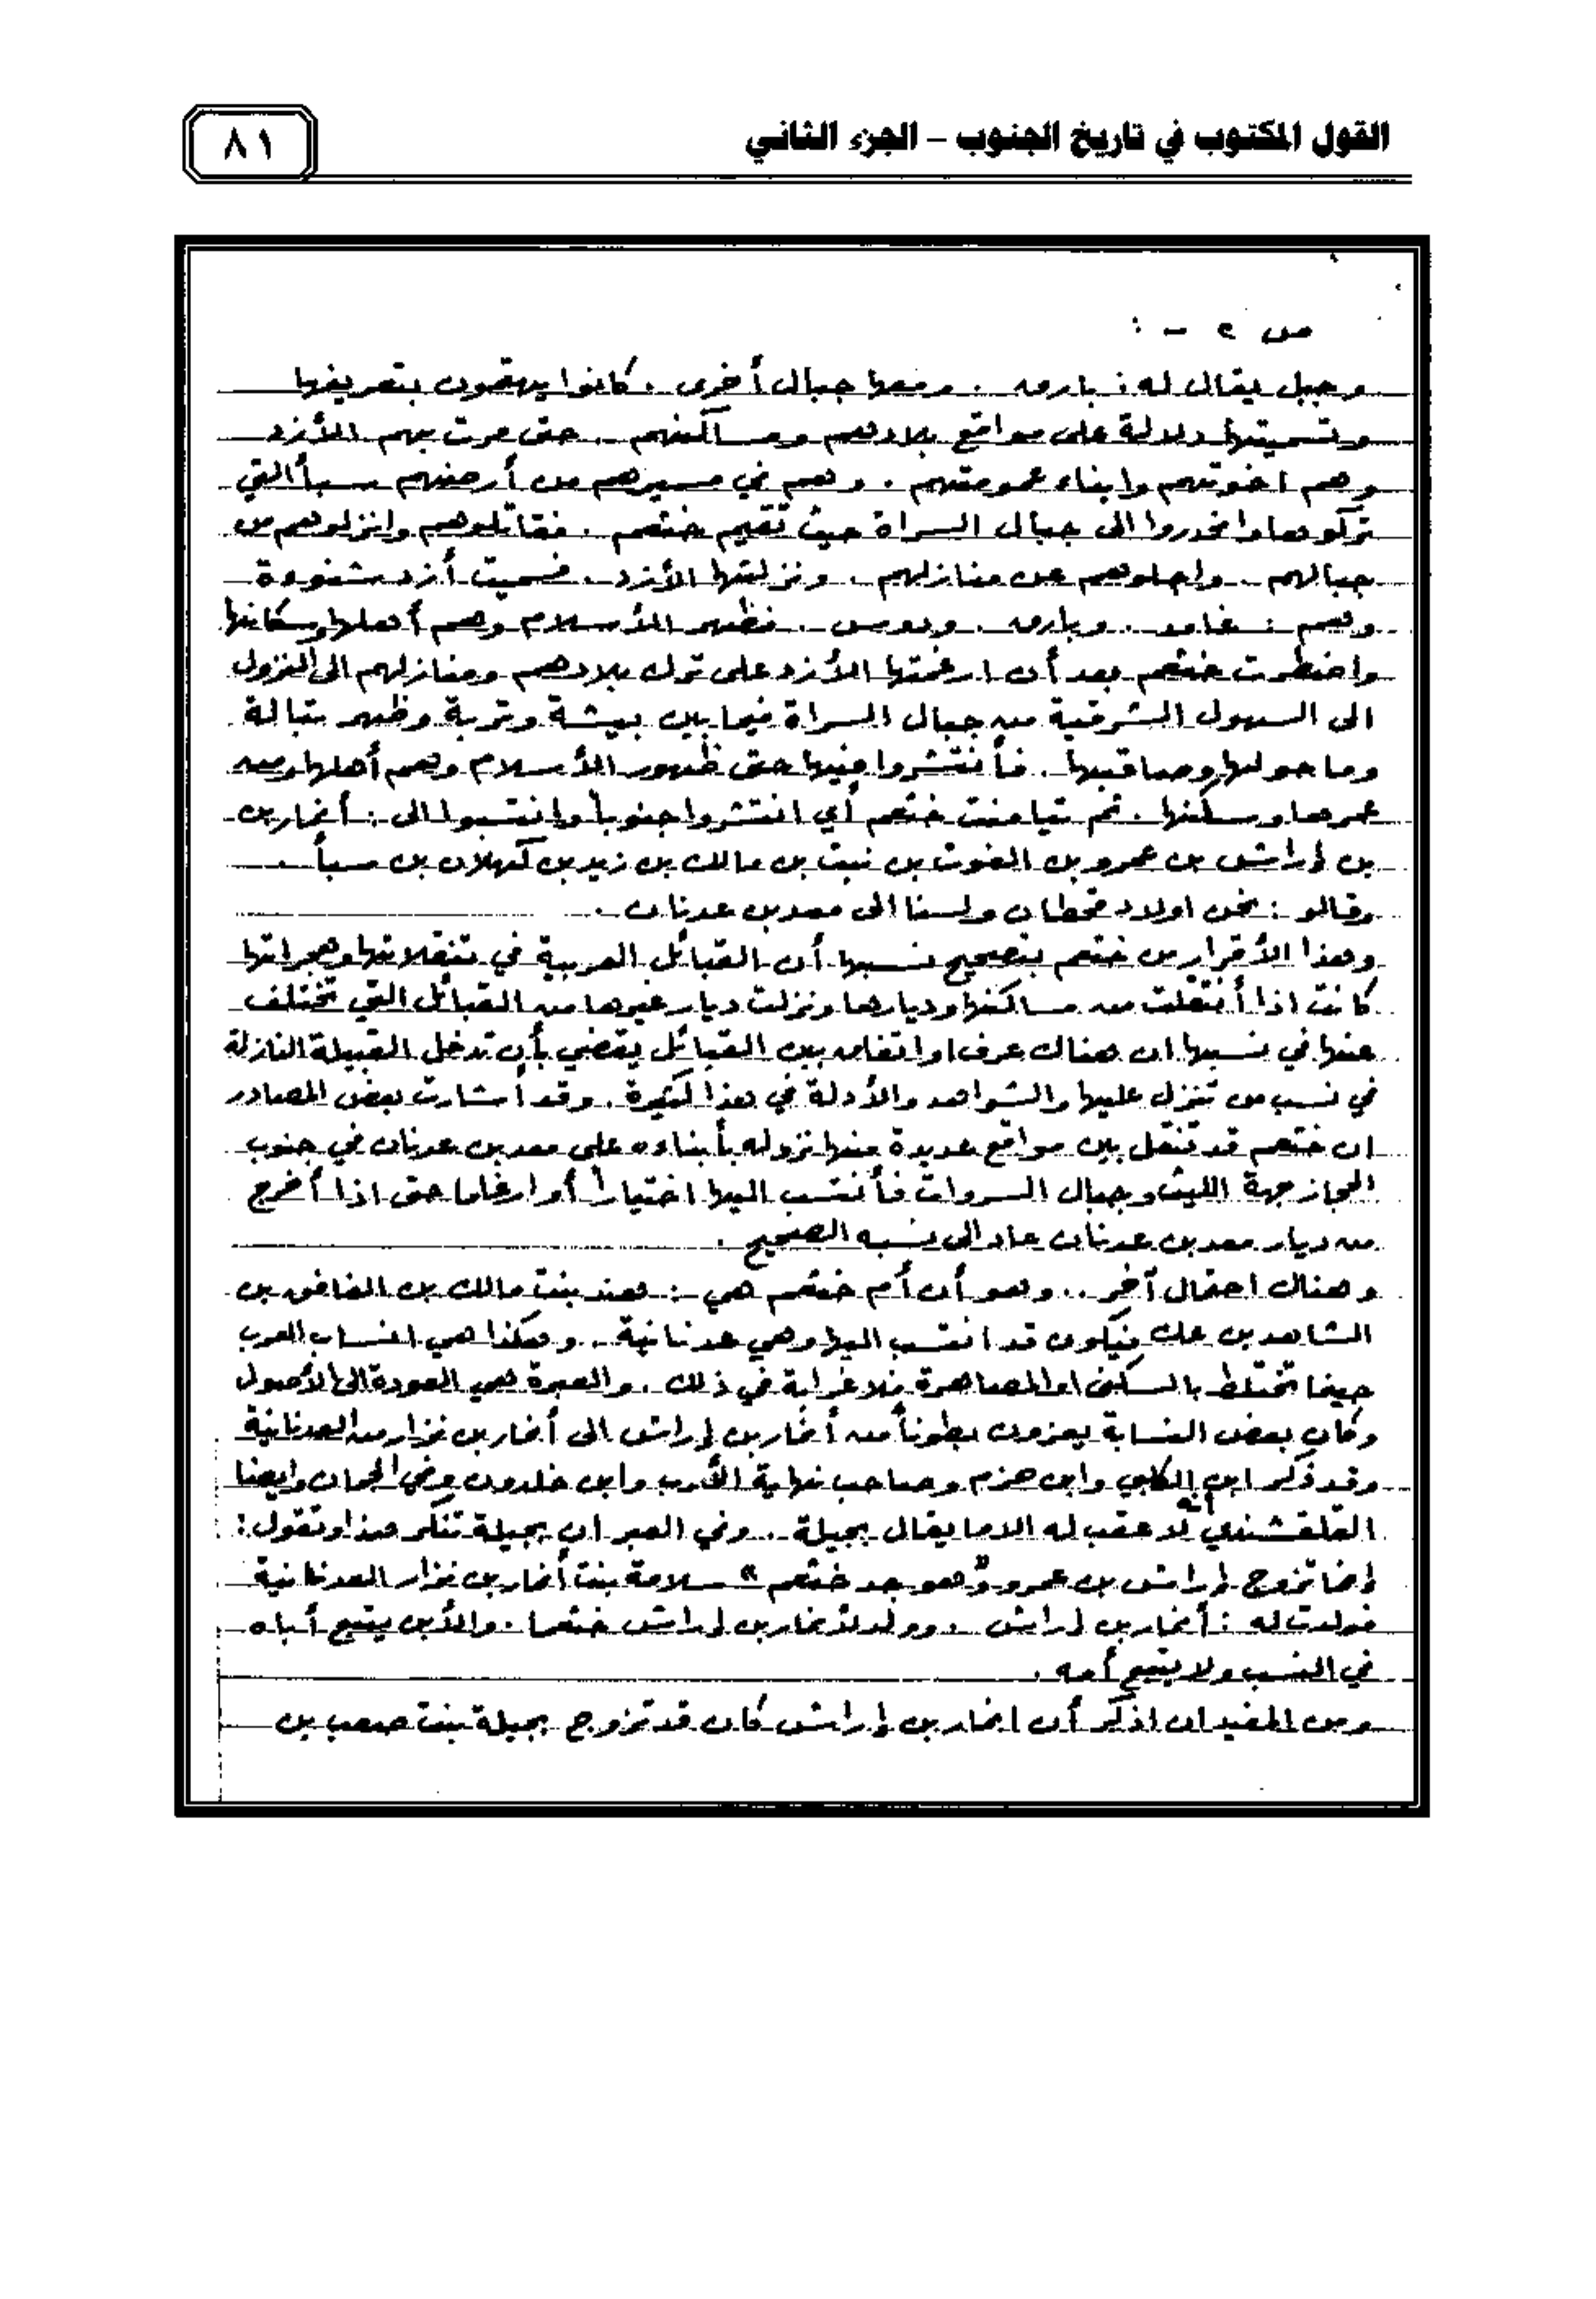 القول المكتوب في تاريخ الجنوب – الجزء الثاني
٨١
ص ٢ - :
وجبل يقال له : بارق . ومعها جبال أخرى . كانوا يهتمون بتعريفها
وتسميتها دلالة على مواقع بلادهم ومساكنهم .. حتى مرت بهم الأزد
وهم اخوتهم وابناء عمومتهم . وهم في مسيرهم من أرضهم سبأ التي
تركوها وانحدروا الى جبال السراة حيث تقيم خثعم . فقاتلوهم وانزلوهم من
جبالهم .. واجلوهم عن منازلهم .. ونزلتها الأزد . فسميت أزد شنوءة
وهم : غامد .. وبارق . ودوس .. فظهر الأسلام وهم أهلها وسكانها
واضطرت خثعم بعد أن ارغمتها الأزد على ترك بلادهم ومنازلهم الى النزول
الى السهول الشرقية من جبال السراة فيما بين بيشة وتربة وظهر تبالة
وما حولها وصاقبها .. فأنتشروا فيها حتى ظهور الأسلام وهم أهلها ومن
عمرها وسكنها . ثم تيامنت خثعم أي انتشروا جنوباً وانتسبوا الى : أنمار بن
بن إراش بن عمرو بن الغوث بن نبت بن مالك بن زيد بن كهلان بن سبأ .
وقالو : نحن اولاد قحطان ولسنا الى معد بن عدنان .
وهذا الأقرار من خثعم بتصحيح نسبها أن القبائل العربية في تنقلاتها وهجراتها
كانت اذا أنتقلت من مساكنها وديارها ونزلت ديار غيرها من القبائل التي تختلف
عنها في نسبها ان هناك عرف او اتفاق بين القبائل يقضي بأن تدخل القبيلة النازلة
في نسب من تنزل عليها والشواهد والأدلة في هذا كثيرة . وقد أشارت بعض المصادر
ان خثعم قد تنقل بين مواقع عديدة منها نزوله بأبناءه على معد بن عدنان في جنوب
الحجاز جهة الليث وجبال السروات فأنتسب اليها اختياراً أو ارغاما حتى اذا أخرج
من ديار معد بن عدنان عاد الى نسبه الصحيح .
وهناك احتمال آخر .. وهو أن أم خثعم هي : هند بنت مالك بن الغافق بن
الشاهد بن عك فيكون قد انتسب اليها وهي عدنانية .. وهكذا هي انساب العرب
حينما تختلط بالسكنى او المصاهرة فلا غرابة في ذلك . والعبرة هي العودة الى الأصول
وكان بعض النسابة يعزون بطوناً من أنمار بن إراش الى أنمار بن نزار من العدنانية
وقد ذكر ابن الكلبي وابن حزم وصاحب نهاية الأرب وابن خلدون وفي الجمان وايضا
القلقشندي أنه لا عقب له الا ما يقال بجيلة .. وفي العبر ان بجيلة تنكر هذا وتقول :
إنما تزوج إراش بن عمرو " وهو جد خثعم " سلامة بنت أنمار بن نزار العدنانية
فولدت له : أنمار بن إراش . وولد لأنمار بن إراش خثعما . والأبن يتبع أباه
في النسب ولا يتبع أمه .
ومن المفيد ان اذكر أن انمار بن إراش كان قد تزوج بجيلة بنت صعب بن